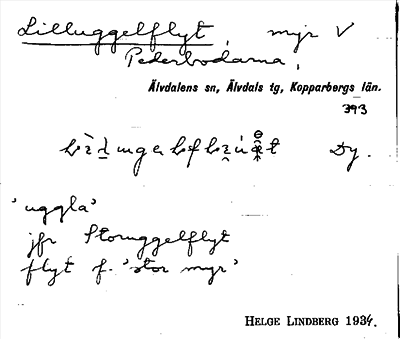 Lilluggelflyt, myr V
Pederbodarna,
Älvdalens sn, Älvdals tg, Kopparbergs län.
393
Dy.
'uggla'
jfr Storuggelflyt
flyt f. 'stor myr'
HELGE LINDBERG 1934.